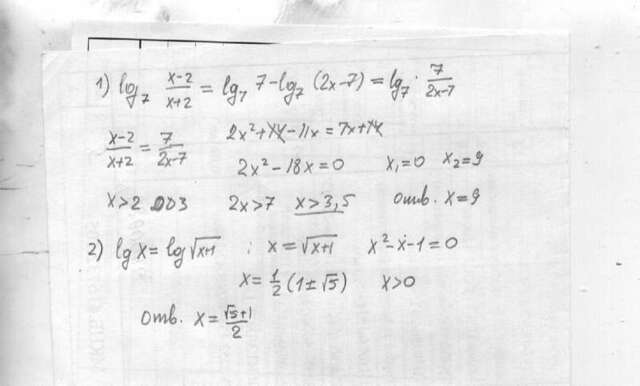 1) log₇ (x-2)/(x+2) = lg₇ 7 - log₇ (2x-7) = lg₇ · 7/(2x-7)
(x-2)/(x+2) = 7/(2x-7) 2x²+14-11x = 7x+14
2x²-18x=0 x₁=0 x₂=9
x>2 ОДЗ 2x>7 x>3,5 Отв. x=9
2) lg x = log √(x+1) ; x=√(x+1) x²-x-1=0
x = 1/2 (1±√5) x>0
Отв. x = (√5+1)/2